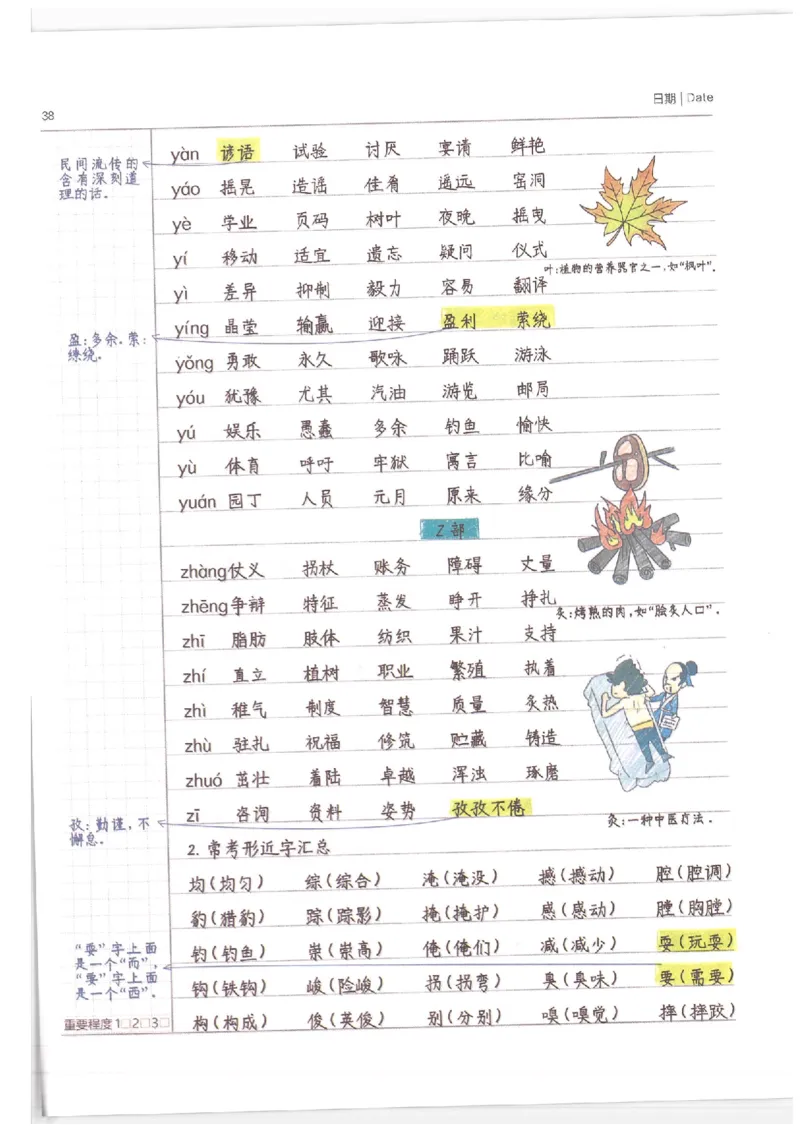 38
日期 | Date
yàn 谚语 试验 讨厌 宴请 鲜艳
民间流传的
含有深刻道
理的话.
yáo 摇晃 造谣 佳肴 遥远 窑洞
yè 学业 页码 树叶 夜晚 摇曳
yí 移动 适宜 遗忘 疑问 仪式
叶:植物的营养器官之一,如“枫叶”.
yì 差异 抑制 毅力 容易 翻译
yíng 晶莹 输赢 迎接 盈利 萦绕
盈:多余.萦:
缭绕.
yǒng 勇敢 永久 歌咏 踊跃 游泳
yóu 犹豫 尤其 汽油 游览 邮局
yú 娱乐 愚蠢 多余 钓鱼 愉快
yù 体育 呼吁 牢狱 寓言 比喻
yuán 园丁 人员 元月 原来 缘分
Z部
zhàng 仗义 拐杖 账务 障碍 丈量
zhēng 争辩 特征 蒸发 睁开 挣扎
炙:烤熟的肉,如“脍炙人口”.
zhī 脂肪 肢体 纺织 果汁 支持
zhí 直立 植树 职业 繁殖 执着
zhì 稚气 制度 智慧 质量 炙热
zhù 驻扎 祝福 修筑 贮藏 铸造
zhuó 茁壮 着陆 卓越 浑浊 琢磨
zī 咨询 资料 姿势 孜孜不倦
孜:勤谨,不
懈怠.
灸:一种中医疗法.
2.常考形近字汇总
均(均匀) 综(综合) 淹(淹没) 撼(撼动) 腔(腔调)
豹(猎豹) 踪(踪影) 掩(掩护) 感(感动) 膛(胸膛)
钓(钓鱼) 崇(崇高) 俺(俺们) 减(减少) 耍(玩耍)
“耍”字上面
是一个“而”,
“要”字上面
是一个“西”.
钩(铁钩) 峻(险峻) 拐(拐弯) 臭(臭味) 要(需要)
构(构成) 俊(英俊) 别(分别) 嗅(嗅觉) 摔(摔跤)
重要程度 1□2□3□